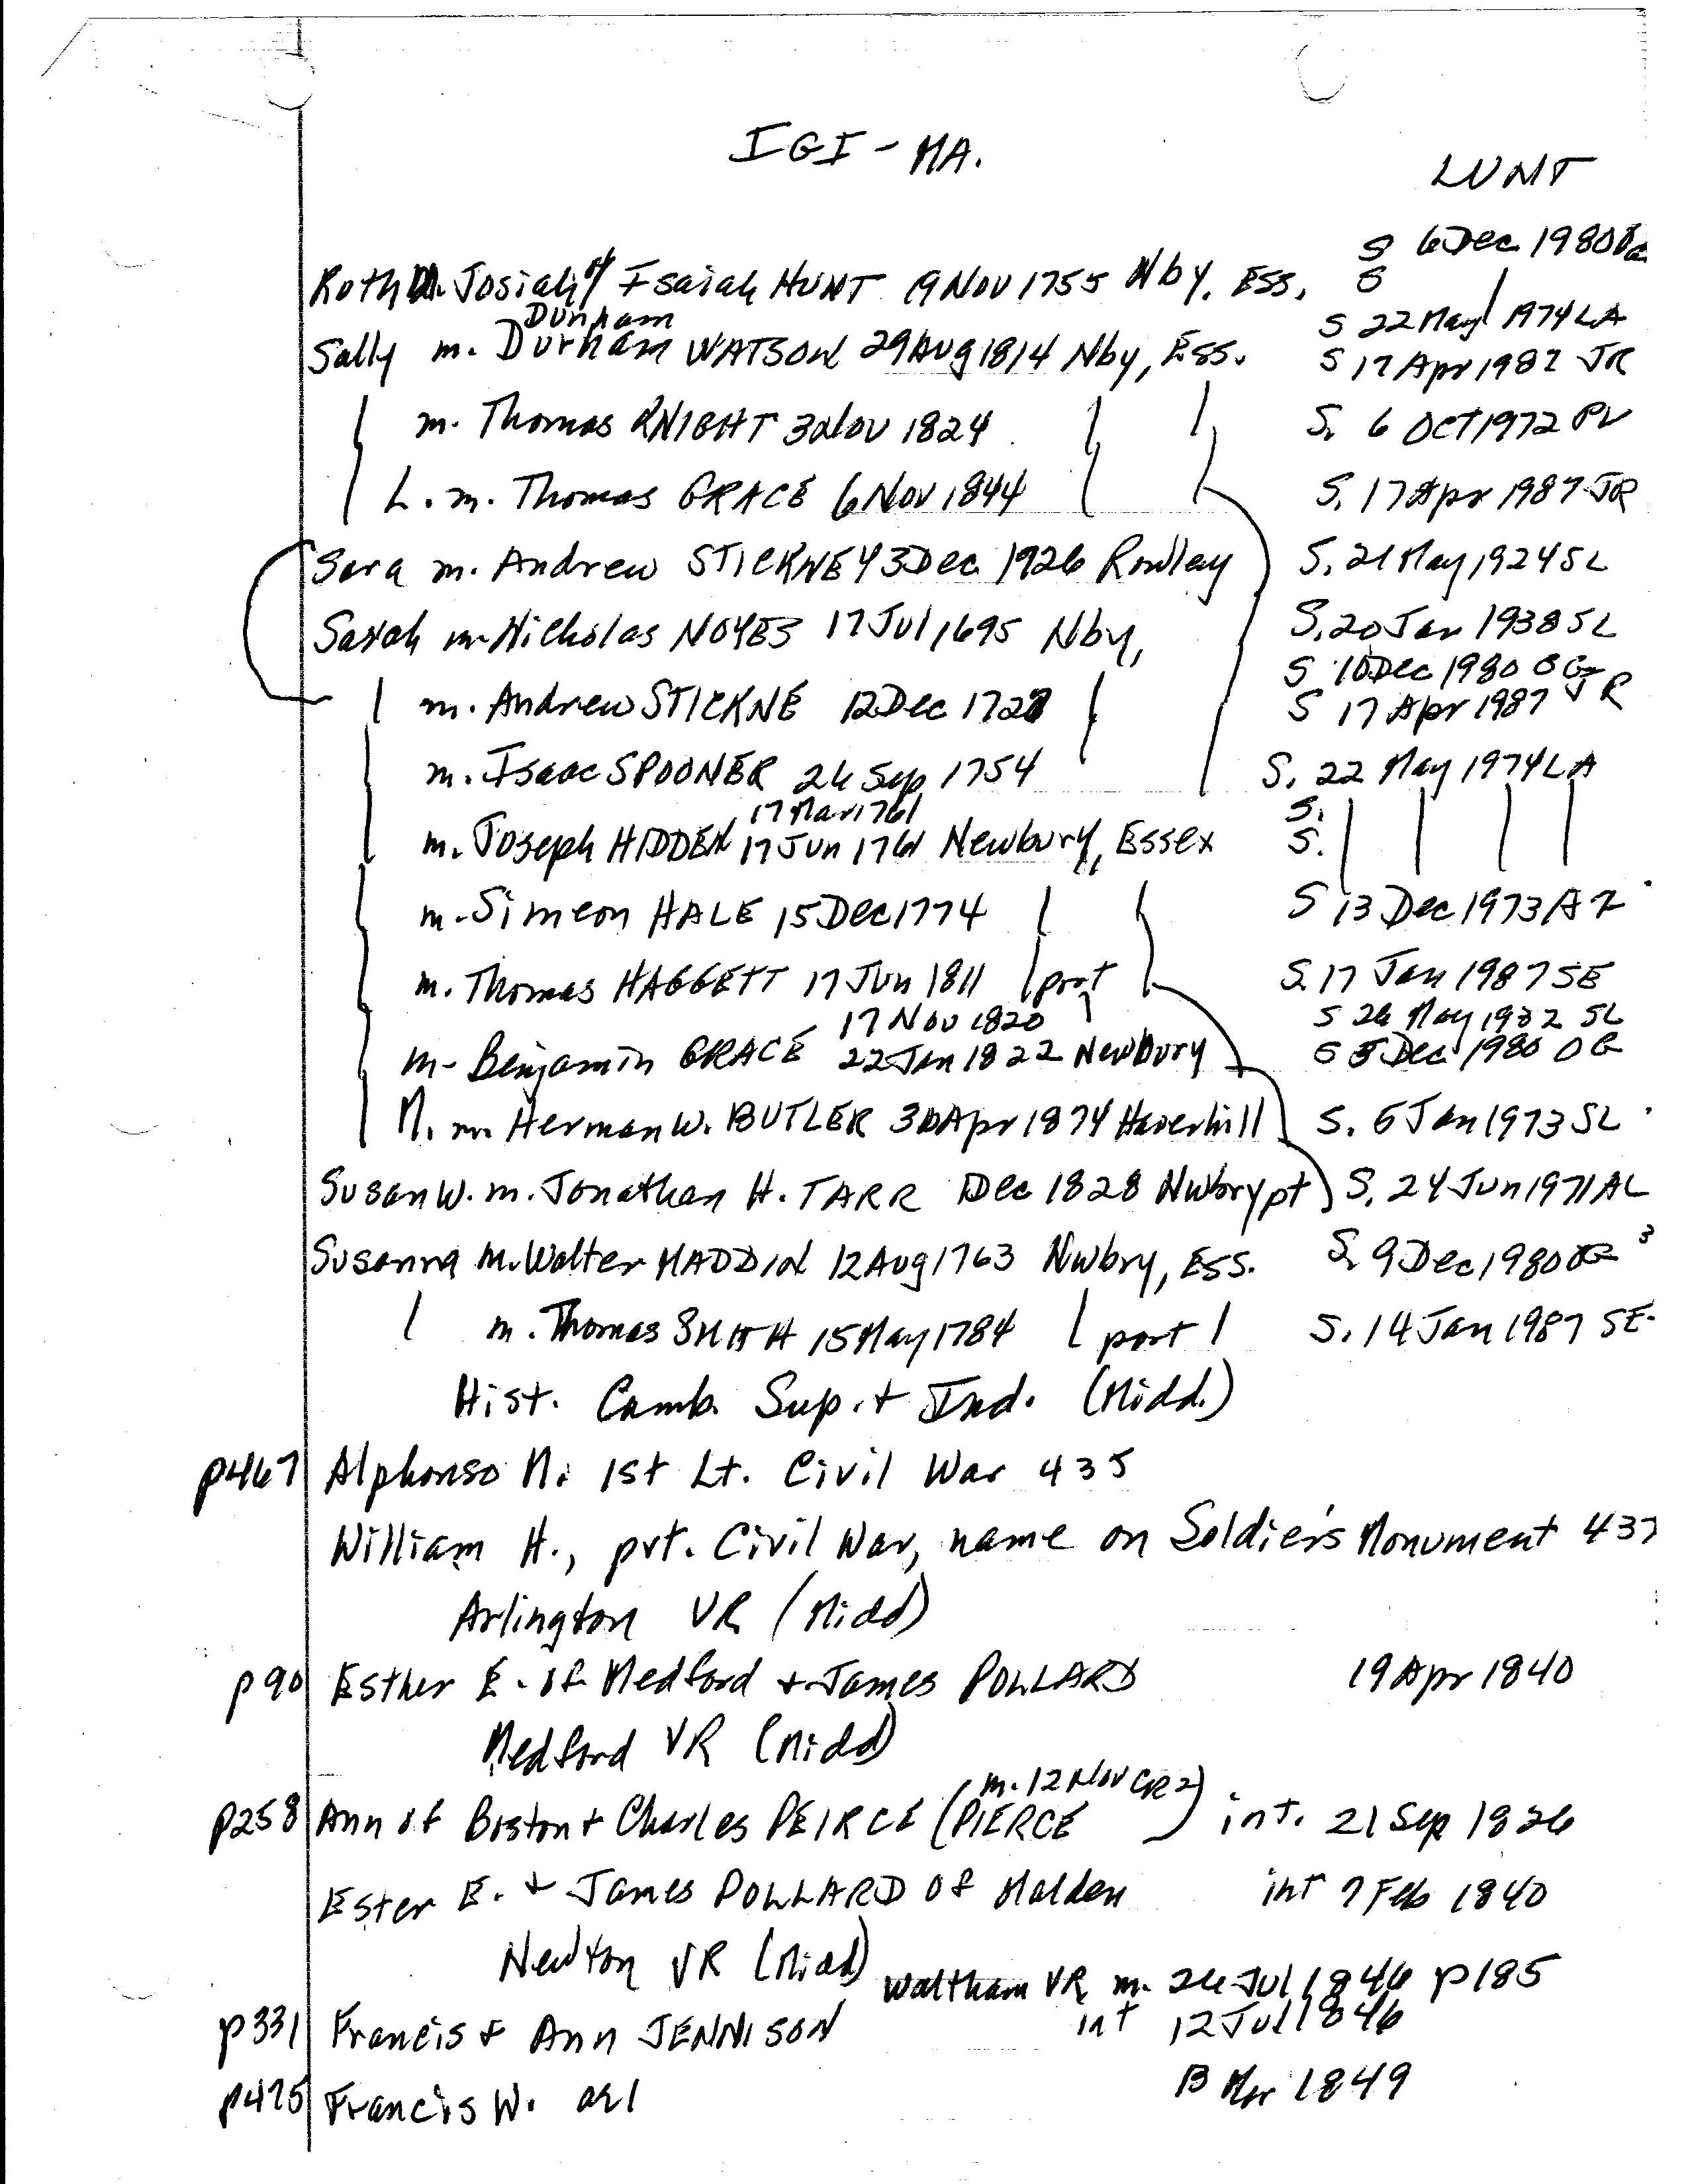 IGI - MA.
LUNT
S 6 Dec 1980
Ruth m. Josiah of Isaiah HUNT 19 Nov 1755 Nby, Ess, S
Dunham S 22 May 1974 LA
Sally m. Durham WATSON 29 Aug 1814 Nby, Ess. S 17 Apr 1987 JR
m. Thomas KNIGHT 3 Nov 1824 S. 6 OCT 1972 PV
L. m. Thomas GRACE 6 Nov 1844 S. 17 Apr 1987 JR
Sara m. Andrew STICKNEY 3 Dec 1726 Rowley S. 21 May 1924 SL
Sarah m. Nicholas NOYES 17 Jul 1695 Nby, S. 20 Jan 1938 SL
S 10 Dec 1980 OG
m. Andrew STICKNE 12 Dec 1727 S 17 Apr 1987 JR
m. Isaac SPOONER 26 Sep 1754 S. 22 May 1974 LA
17 Mar 1761 S.
m. Joseph HIDDEN 17 Jun 1761 Newbury, Essex S.
m. Simeon HALE 15 Dec 1774 S 13 Dec 1973 AZ
m. Thomas HAGGETT 17 Jun 1811 port S. 17 Jan 1987 SE
17 Nov 1820 S 26 May 1932 SL
m. Benjamin GRACE 22 Jan 1822 Newbury S 5 Dec 1980 OG
M. m. Herman W. BUTLER 30 Apr 1874 Haverhill S. 5 Jan 1973 SL
Susan W. m. Jonathan H. TARR Dec 1828 Nwbrypt S. 24 Jun 1971 AL
Susanna m. Walter MADDIN 12 Aug 1763 Nwbry, Ess. S. 9 Dec 1980 OG
m. Thomas SMITH 15 May 1784 port S. 14 Jan 1987 SE
Hist. Camb. Sup. + Ind. (Midd.)
p467 Alphonso M. 1st Lt. Civil War 435
William H., pvt. Civil War, name on Soldier's Monument 437
Arlington VR (Midd)
p90 Esther E. of Medford + James POLLARD 19 Apr 1840
Medford VR (Midd)
m. 12 Nov GR2)
p258 Ann of Boston + Charles PEIRCE (PIERCE int. 21 Sep 1826
Ester E. + James POLLARD of Malden int 7 Feb 1840
Newton VR (Midd) Waltham VR m. 26 Jul 1846 p185
p331 Francis + Ann JENNISON int 12 Jul 1846
p475 Francis W. Mr 1849